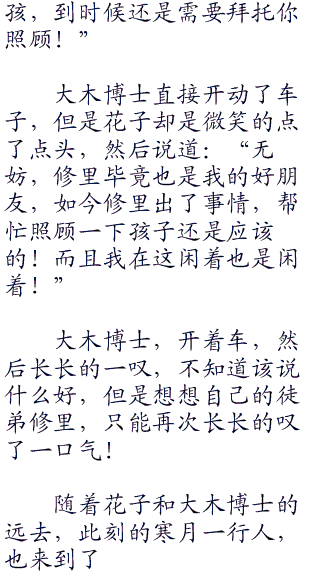 孩，到时候还是需要拜托你
照顾！”
大木博士直接开动了车
子，但是花子却是微笑的点
了点头，然后说道：“无
妨，修里毕竟也是我的好朋
友，如今修里出了事情，帮
忙照顾一下孩子还是应该
的！而且我在这闲着也是闲
着！”
大木博士，开着车，然
后长长的一叹，不知道该说
什么好，但是想想自己的徒
弟修里，只能再次长长的叹
了一口气！
随着花子和大木博士的
远去，此刻的寒月一行人，
也来到了